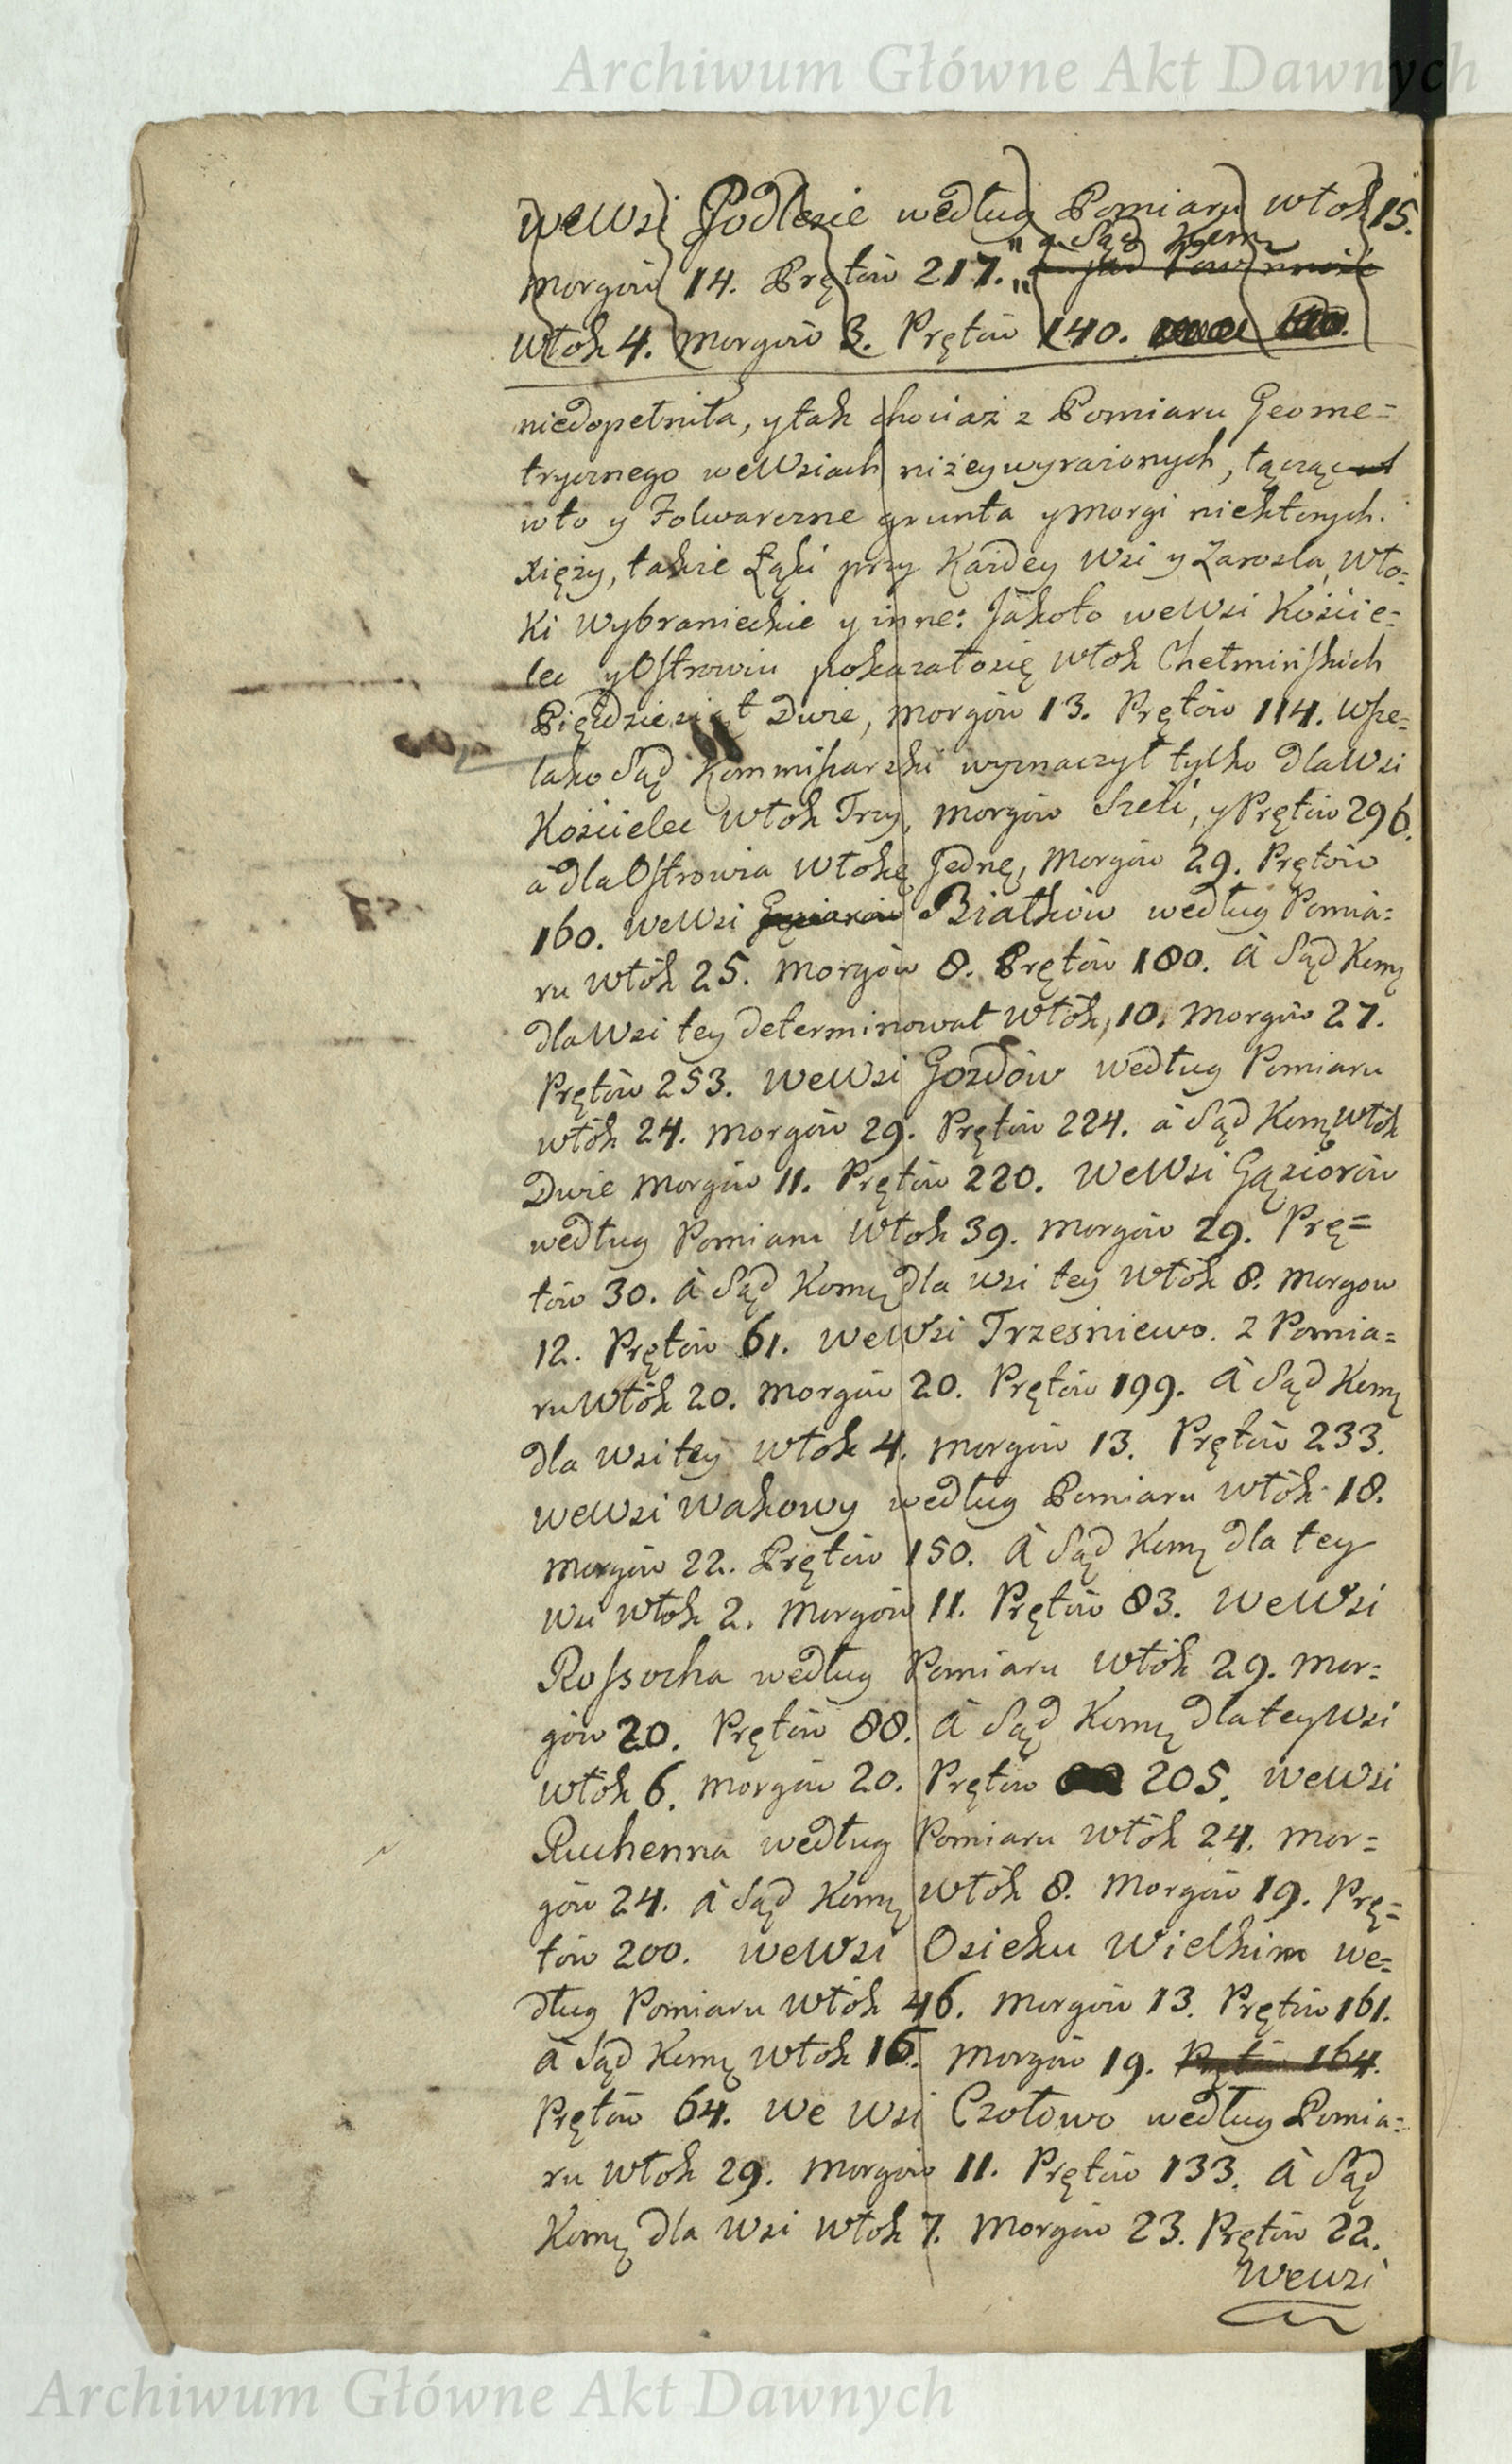 Archiwum Główne Akt Dawnych
weWsi Podlesie według Pomiaru włok 15.
a Sąd Komm
Morgów 14. Prętów 217.
Włok 4. Morgów 3. Prętów 140.
niedopełniła, y tak chociaż z Pomiaru Geome=
trycznego weWsiach niżey wyrażonych, łącząc
wto y Folwarczne grunta y Morgi niektórych
Xięży, także Łąki przy Każdey Wsi y Zarosla, Wło=
ki Wybranieckie y inne: Jakoto weWsi Koście=
lec y Ostrowiu pokazałosię Włok Chełmińskich
Pięćdziesiąt Dwie, Morgów 13. Prętów 114. wsze=
lako Sąd Kommissarski wyznaczył tylko dlaWsi
Kościelec Włok Trzy, Morgów Sześć, y Prętów 296.
a dla Ostrowia Włokę Jednę, Morgów 29. Prętów
160. weWsi Gąsiorów Białków według Pomia=
ru Włók 25. Morgów 8. Prętów 180. à Sąd Komm
dlaWsi tey determinował Włók, 10. Morgów 27.
Prętów 253. WeWsi Gozdów według Pomiaru
włók 24. Morgów 29. Prętów 224. à Sąd Komm Włók
Dwie Morgów 11. Prętów 220. WeWsi Gąsiorów
według Pomiaru Włok 39. Morgów 29. Prę=
tów 30. à Sąd Komm dla wsi tey Włók 8. Morgow
12. Prętów 61. WeWsi Trzesniewo. z Pomia=
ru Włók 20. Morgów 20. Prętów 199. à Sąd Komm
dla wsi tey włok 4. Morgów 13. Prętów 233.
weWsi Wakowy według Pomiaru włók 18.
Morgów 22. Prętów 150. à Sąd Komm dla tey
wsi włok 2. Morgów 11. Prętów 83. WeWsi
Rossocha według Pomiaru Włók 29. Mor=
gów 20. Prętów 88. à Sąd Komm dla tey Wsi
Włók 6. Morgów 20. Prętów 205. WeWsi
Ruchenna według Pomiaru Włók 24. Mor=
gów 24. à Sąd Komm Włók 8. Morgów 19. Prę=
tów 200. weWsi Osieku Wielkim we=
dług Pomiaru Włók 46. Morgów 13. Prętów 161.
à Sąd Komm Włók 16. Morgów 19. Prętów 164.
Prętów 64. We Wsi Czołowo według Pomia=
ru Włok 29. Morgów 11. Prętów 133. à Sąd
Komm dla Wsi włok 7. Morgów 23. Prętów 22.
Wewsi
Archiwum Główne Akt Dawnych